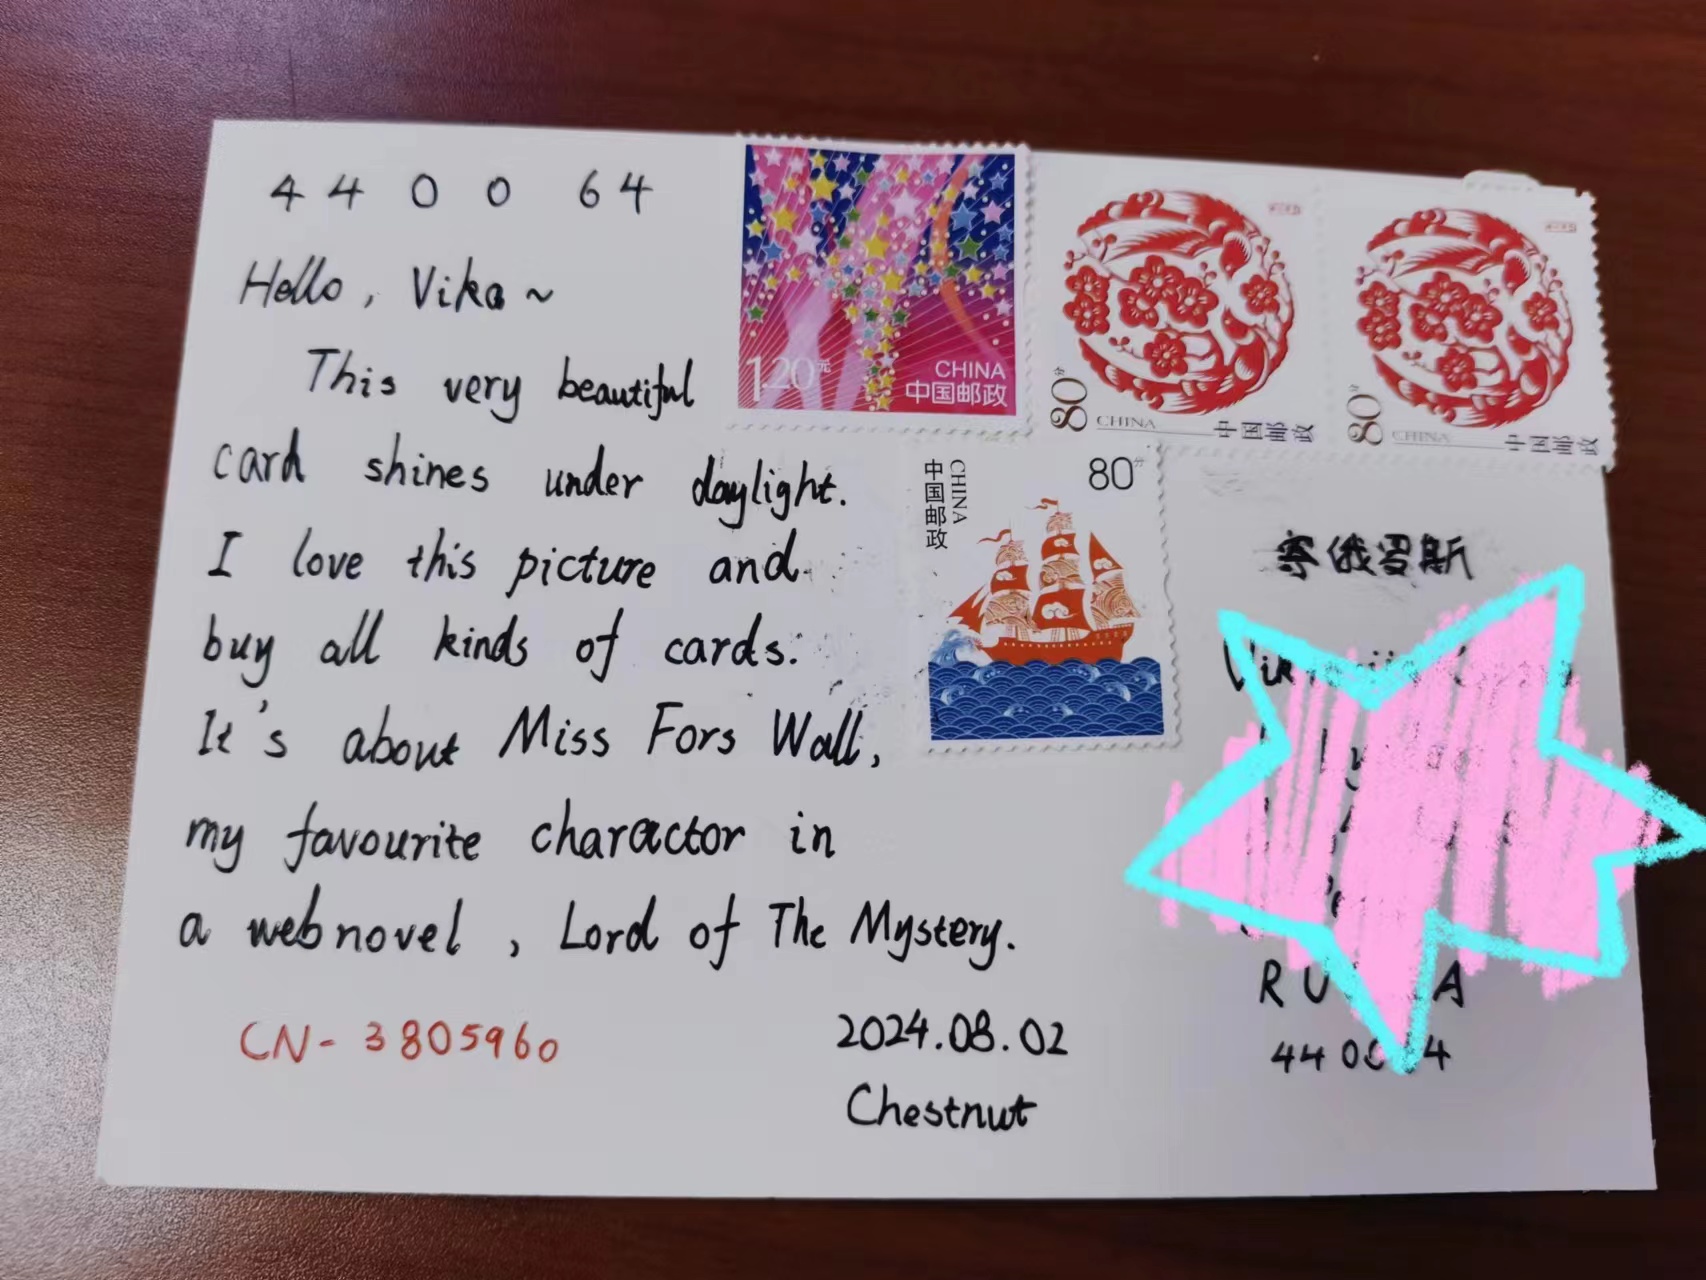 44 00 64
Hello, Vika~
This very beautiful
card shines under daylight.
I love this picture and
buy all kinds of cards.
It's about Miss Fors Wall,
my favourite charactor in
a web novel, Lord of The Mystery.
CN-3805960
2024.08.02
Chestnut
1.20元
CHINA
中国邮政
80分
CHINA
中国邮政
80分
CHINA
中国邮政
80分
CHINA
中国邮政
寄俄罗斯